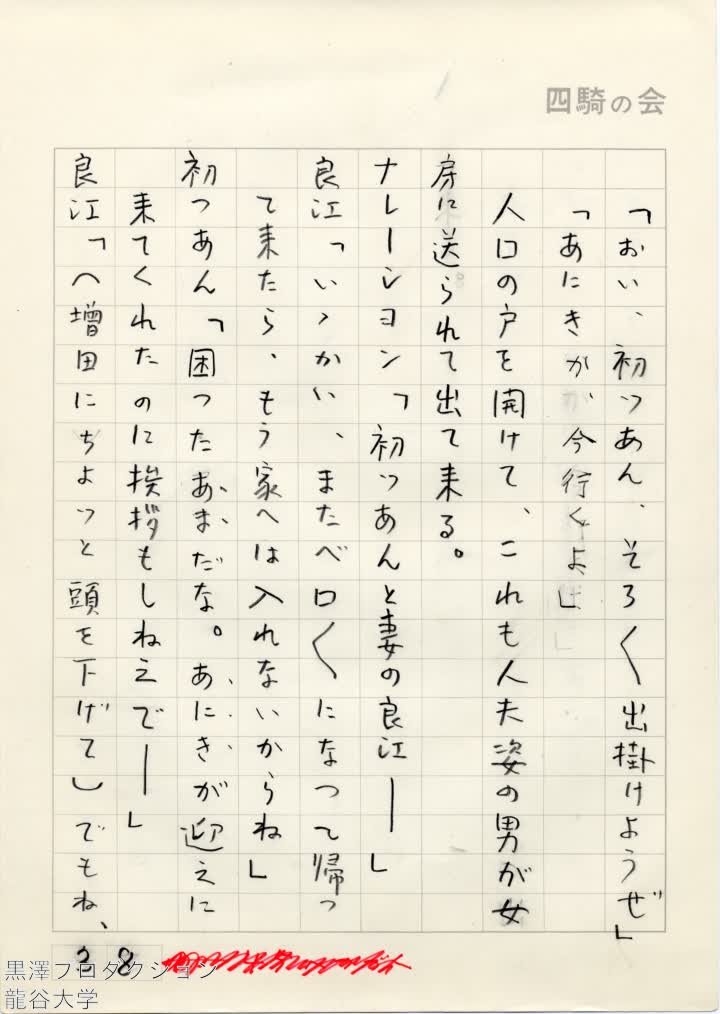 四騎の会
「おい、初つあん、そろ〱出掛けようぜ」
「あにきか、今行くよ」
入口の戸を開けて、これも人夫姿の男が女
房に送られて出て来る。
ナレーション「初つあんと妻の良江――」
良江「いゝかい、またベロ〱になつて帰つ
て来たら、もう家へは入れないからね」
初つあん「困ったあまだな。あにきが迎えに
来てくれたのに挨拶もしねえで――」
良江「（増田にちよつと頭を下げて）でもね、
28
黒澤プロダクション
龍谷大学